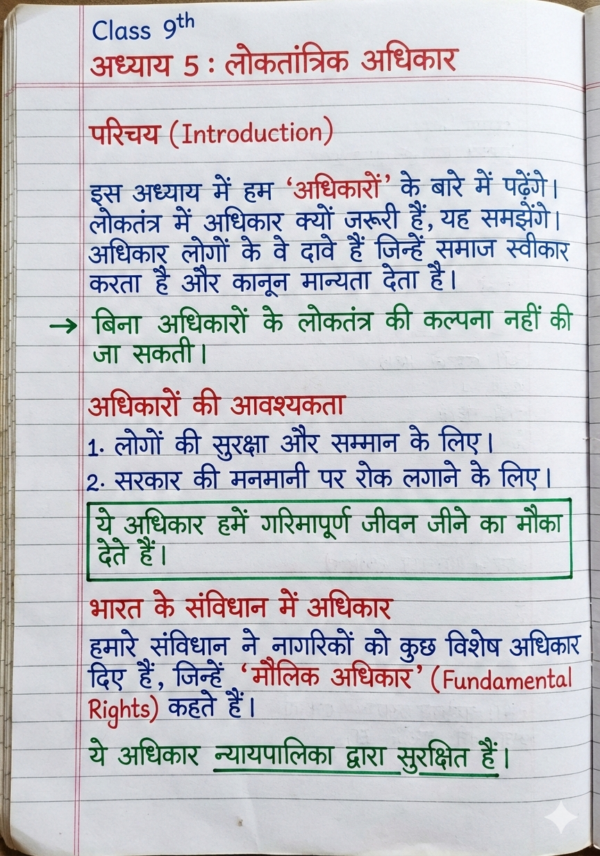 Class 9th
अध्याय 5 : लोकतांत्रिक अधिकार
परिचय (Introduction)
इस अध्याय में हम ‘अधिकारों’ के बारे में पढ़ेंगे।
लोकतंत्र में अधिकार क्यों ज़रूरी हैं, यह समझेंगे।
अधिकार लोगों के वे दावे हैं जिन्हें समाज स्वीकार
करता है और कानून मान्यता देता है।
→ बिना अधिकारों के लोकतंत्र की कल्पना नहीं की
जा सकती।
अधिकारों की आवश्यकता
1. लोगों की सुरक्षा और सम्मान के लिए।
2. सरकार की मनमानी पर रोक लगाने के लिए।
ये अधिकार हमें गरिमापूर्ण जीवन जीने का मौका
देते हैं।
भारत के संविधान में अधिकार
हमारे संविधान ने नागरिकों को कुछ विशेष अधिकार
दिए हैं, जिन्हें ‘मौलिक अधिकार’ (Fundamental
Rights) कहते हैं।
ये अधिकार न्यायपालिका द्वारा सुरक्षित हैं।